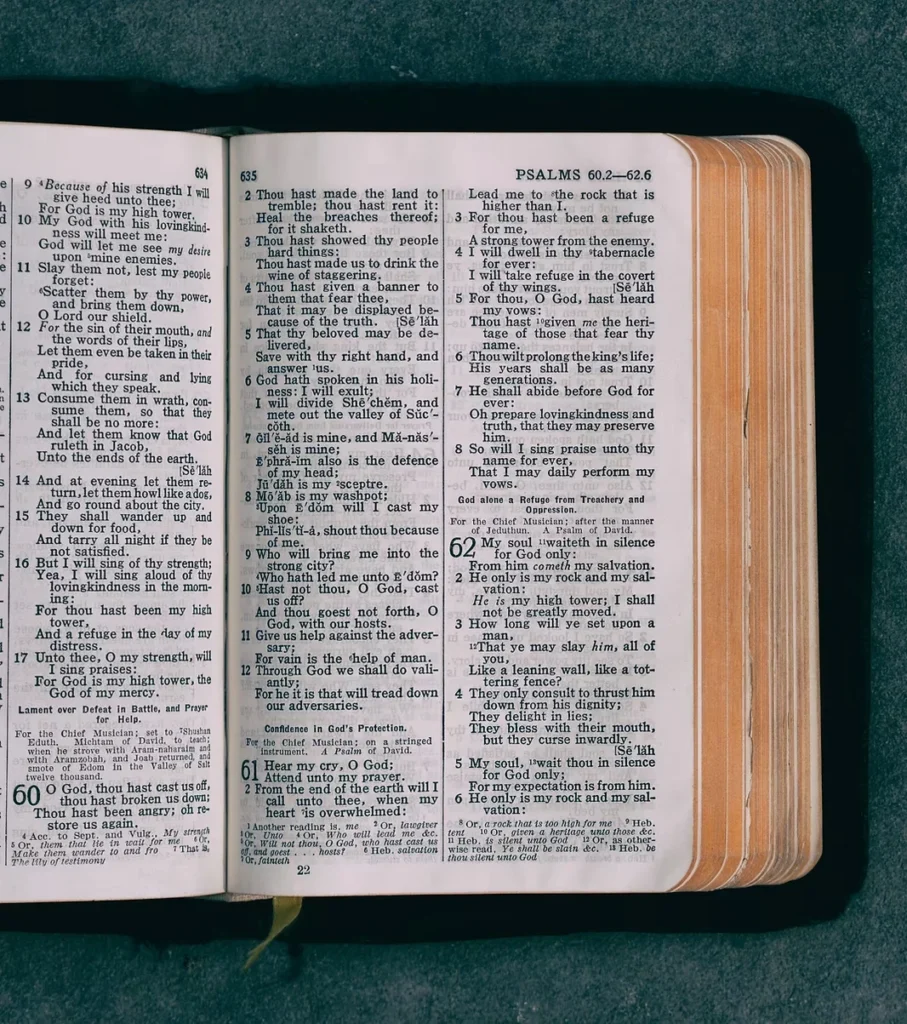 634
9 ⁴Because of his strength I will
give heed unto thee;
For God is my high tower.
10 My God with his lovingkind-
ness will meet me:
God will let me see my desire
upon ⁵mine enemies.
11 Slay them not, lest my people
forget:
⁶Scatter them by thy power,
and bring them down,
O Lord our shield.
12 For the sin of their mouth, and
the words of their lips,
Let them even be taken in their
pride,
And for cursing and lying
which they speak.
13 Consume them in wrath, con-
sume them, so that they
shall be no more:
And let them know that God
ruleth in Jacob,
Unto the ends of the earth.
[Sē´läh
14 And at evening let them re-
turn, let them howl like a dog,
And go round about the city.
15 They shall wander up and
down for food,
And tarry all night if they be
not satisfied.
16 But I will sing of thy strength;
Yea, I will sing aloud of thy
lovingkindness in the morn-
ing:
For thou hast been my high
tower,
And a refuge in the day of my
distress.
17 Unto thee, O my strength, will
I sing praises:
For God is my high tower, the
God of my mercy.
Lament over Defeat in Battle, and Prayer
for Help.
For the Chief Musician; set to ⁷Shushan
Eduth. Michtam of David, to teach;
when he strove with Aram-naharaim and
with Aramzobah, and Joab returned, and
smote of Edom in the Valley of Salt
twelve thousand.
60 O God, thou hast cast us off,
thou hast broken us down;
Thou hast been angry; oh re-
store us again.
⁴ Acc. to Sept. and Vulg., My strength
⁵ Or, them that lie in wait for me ⁶ Or,
Make them wander to and fro ⁷ That is,
The lily of testimony
635
PSALMS 60.2—62.6
2 Thou hast made the land to
tremble; thou hast rent it:
Heal the breaches thereof;
for it shaketh.
3 Thou hast showed thy people
hard things:
Thou hast made us to drink the
wine of staggering.
4 Thou hast given a banner to
them that fear thee,
That it may be displayed be-
cause of the truth. [Sē´läh
5 That thy beloved may be de-
livered,
Save with thy right hand, and
answer ¹us.
6 God hath spoken in his holi-
ness: I will exult;
I will divide Shē´chĕm, and
mete out the valley of Sŭc´-
cŏth.
7 Gĭl´ē-ăd is mine, and Mă-năs´-
sĕh is mine;
Ē´phră-ĭm also is the defence
of my head;
Jū´dăh is my ²sceptre.
8 Mō´ăb is my washpot;
³Upon Ē´dŏm will I cast my
shoe:
Phĭ-lĭs´tĭ-á, shout thou because
of me.
9 Who will bring me into the
strong city?
⁴Who hath led me unto Ē´dŏm?
10 ⁵Hast not thou, O God, cast
us off?
And thou goest not forth, O
God, with our hosts.
11 Give us help against the adver-
sary;
For vain is the ⁶help of man.
12 Through God we shall do vali-
antly;
For he it is that will tread down
our adversaries.
Confidence in God's Protection.
For the Chief Musician; on a stringed
instrument. A Psalm of David.
61 Hear my cry, O God;
Attend unto my prayer.
2 From the end of the earth will I
call unto thee, when my
heart ⁷is overwhelmed:
¹ Another reading is, me ² Or, lawgiver
³ Or, Unto ⁴ Or, Who will lead me &c.
⁵ Or, Will not thou, O God, who hast cast us
off, and goest . . . hosts? ⁶ Heb. salvation
⁷ Or, fainteth
22
Lead me to ⁸the rock that is
higher than I.
3 For thou hast been a refuge
for me,
A strong tower from the enemy.
4 I will dwell in thy ⁹tabernacle
for ever:
I will take refuge in the covert
of thy wings. [Sē´läh
5 For thou, O God, hast heard
my vows:
Thou hast ¹⁰given me the heri-
tage of those that fear thy
name.
6 Thou wilt prolong the king's life;
His years shall be as many
generations.
7 He shall abide before God for
ever:
Oh prepare lovingkindness and
truth, that they may preserve
him.
8 So will I sing praise unto thy
name for ever,
That I may daily perform my
vows.
God alone a Refuge from Treachery and
Oppression.
For the Chief Musician; after the manner
of Jeduthun. A Psalm of David.
62 My soul ¹¹waiteth in silence
for God only:
From him cometh my salvation.
2 He only is my rock and my sal-
vation:
He is my high tower; I shall
not be greatly moved.
3 How long will ye set upon a
man,
¹²That ye may slay him, all of
you,
Like a leaning wall, like a tot-
tering fence?
4 They only consult to thrust him
down from his dignity;
They delight in lies;
They bless with their mouth,
but they curse inwardly.
[Sē´läh
5 My soul, ¹³wait thou in silence
for God only;
For my expectation is from him.
6 He only is my rock and my sal-
vation:
⁸ Or, a rock that is too high for me ⁹ Heb.
tent ¹⁰ Or, given a heritage unto those &c.
¹¹ Heb. is silent unto God ¹² Or, as other-
wise read, Ye shall be slain &c. ¹³ Heb. be
thou silent unto God